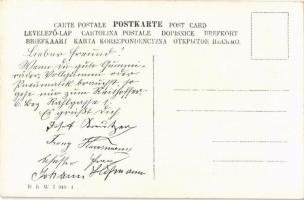 CARTE POSTALE POSTKARTE POST CARD
LEVELEZŐ-LAP CARTOLINA POSTALE DOPISNICE BREFKORT
BRIEFKAART KARTA KORESPONDENCYJNA ОТКРЫТОЕ ПИСЬМО.
Lieber Freund!
Wenn du gute Gummi-
räder, Vollgummi oder
Pneumatik brauchst, so
gehe nur zum Reithoffer
6. Bez
Es grüßt dich
Josef Kreutzer
Franz
Johann Hofmann
B. K. W. I 948-4